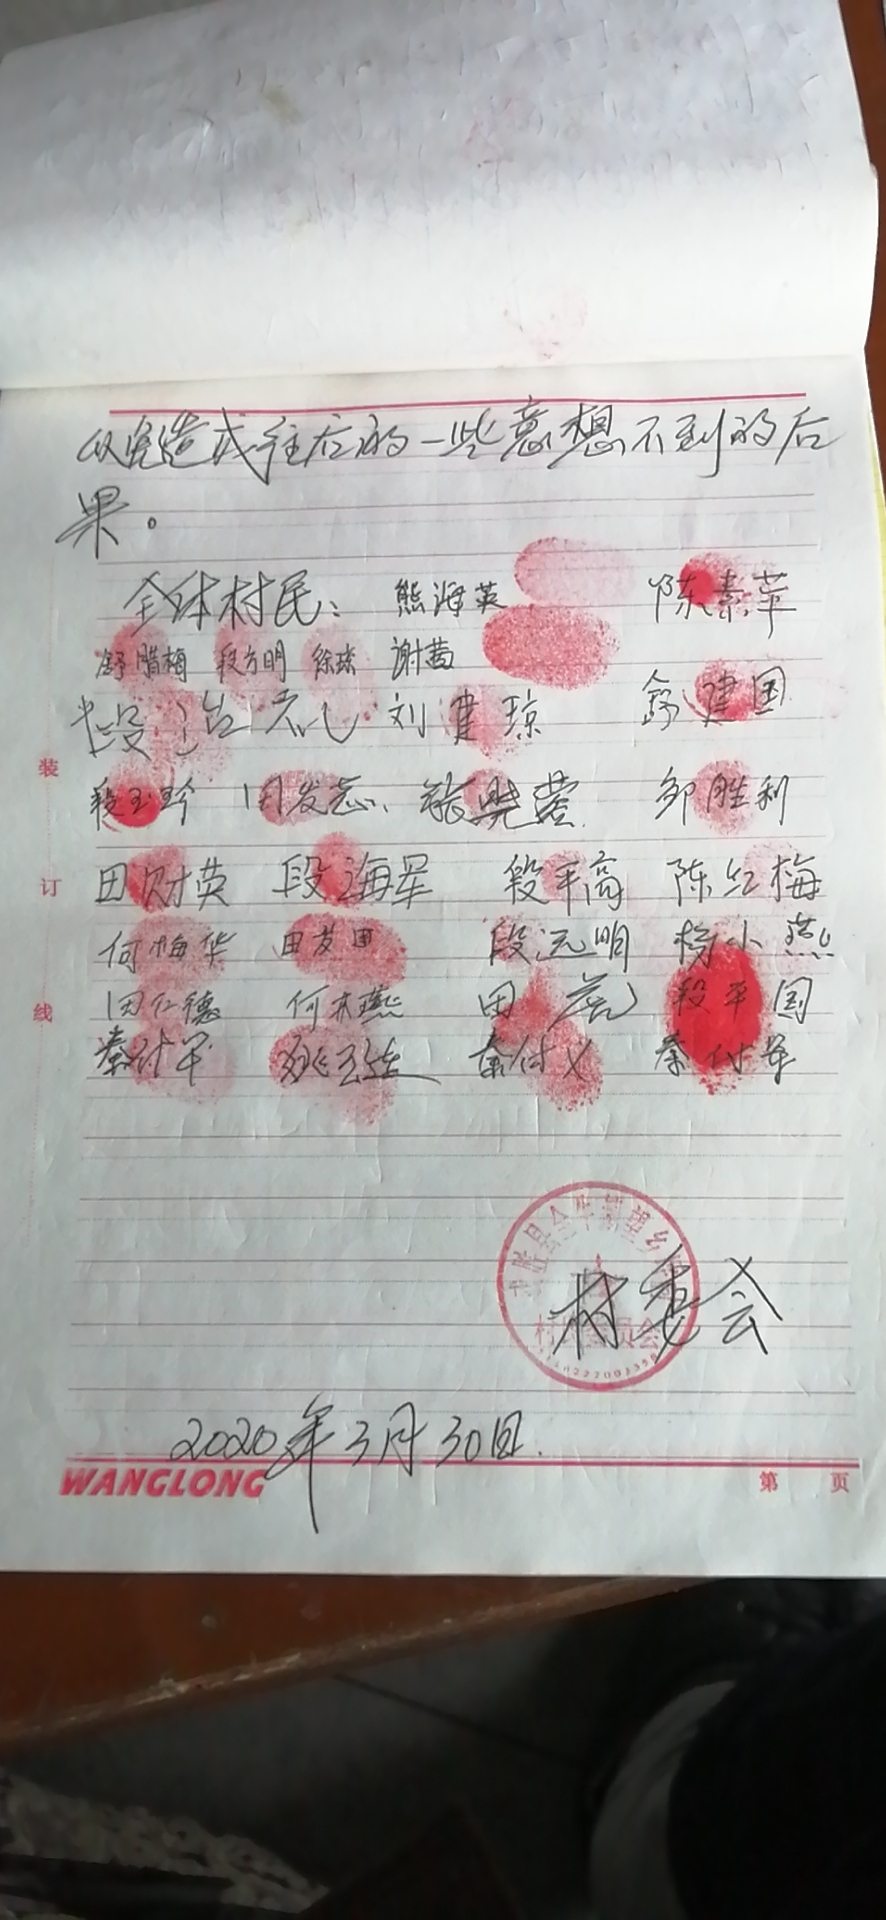 以免造成往后的一些意想不到的后
果。
全体村民: 熊海英 陈素苹
舒腊梅 段方明 徐琼 谢茜
刘建琼 舒建国
段玉玲 田发志 张晓蓉 邹胜利
田财英 段海军 段平高 陈红梅
何梅华 田友国 段远明 杨小燕
田仁德 何木燕 田 段平国
秦付军 秦付义 秦付军
装
订
线
村委会
2020年3月30日.
WANGLONG
第 页